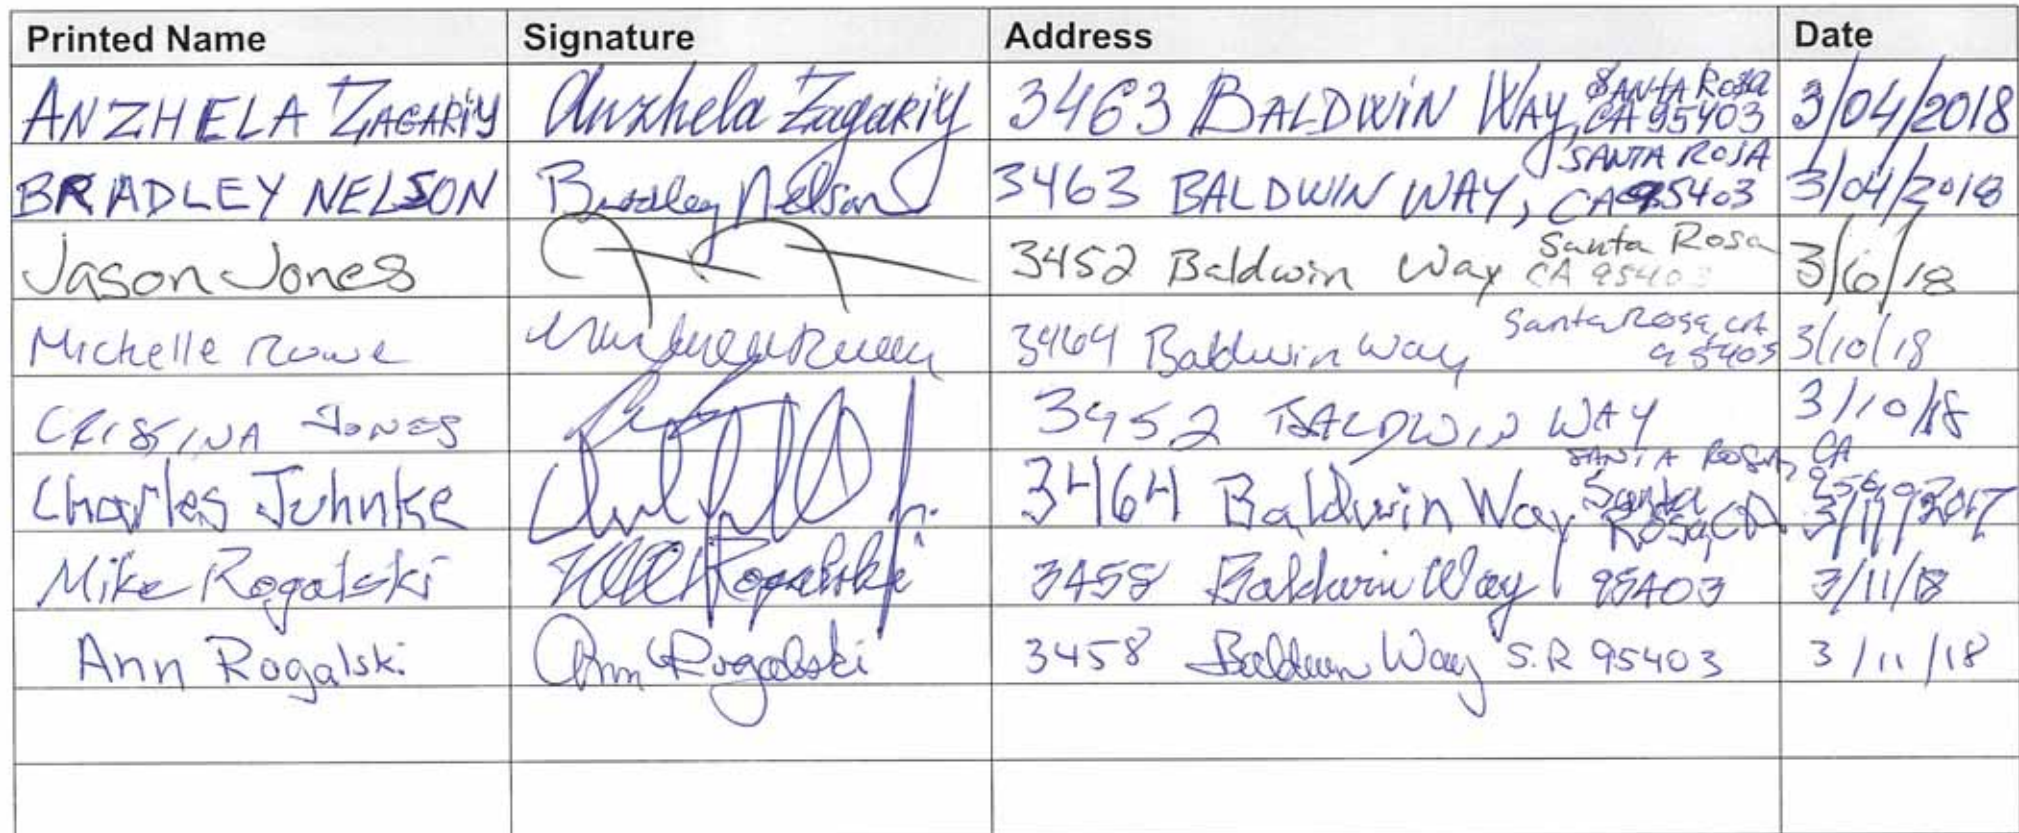 Printed Name Signature Address Date
ANZHELA ZAGARIY Anzhela Zagariy 3463 BALDWIN WAY, SANTA ROSA CA 95403 3/04/2018
BRADLEY NELSON Bradley Nelson 3463 BALDWIN WAY, SANTA ROSA CA 95403 3/04/2018
Jason Jones 3452 Baldwin Way Santa Rosa CA 95403 3/6/18
Michelle Rowe 3464 Baldwin Way Santa Rosa, CA 95403 3/10/18
CRISTINA JONES 3452 BALDWIN WAY SANTA ROSA, CA 3/10/18
Charles Juhnke 3464 Baldwin Way Santa Rosa, CA 3/11/2017
Mike Rogalski Rogalski 3458 Baldwin Way 95403 3/11/18
Ann Rogalski Ann Rogalski 3458 Baldwin Way S.R 95403 3/11/18